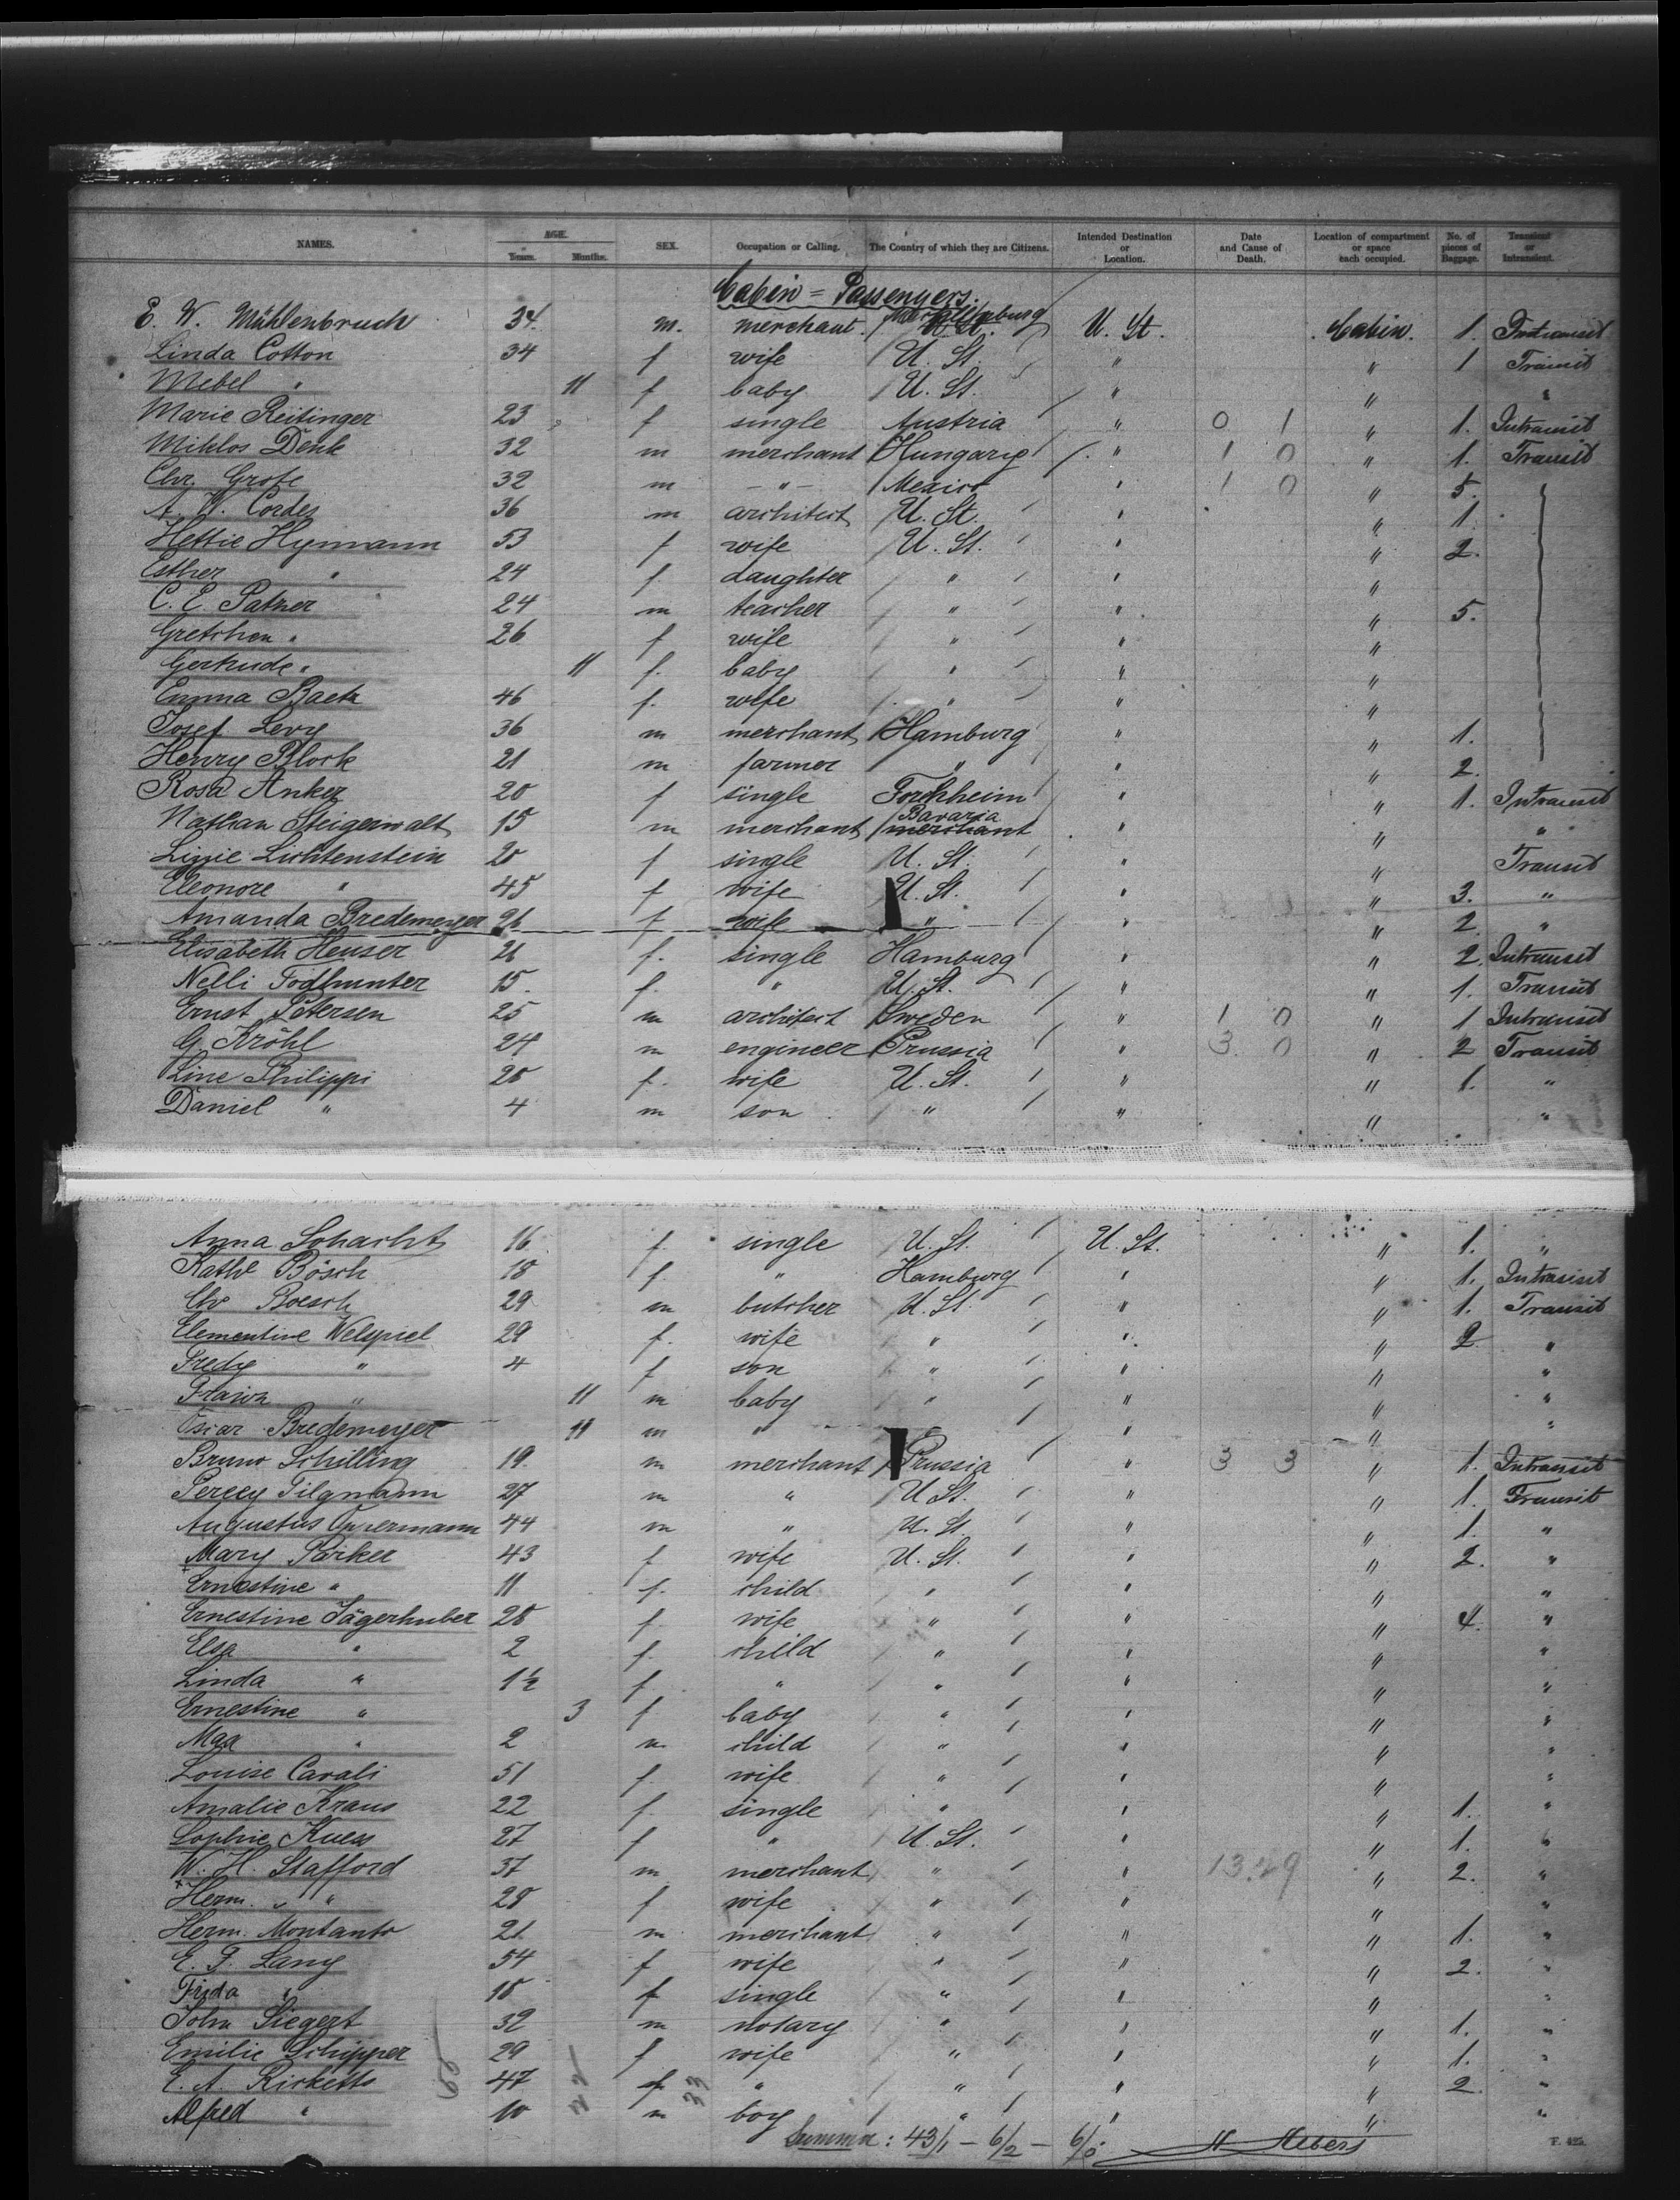 NAMES. AGE. Years. Months. SEX. Occupation or Calling. The Country of which they are Citizens. Intended Destination or Location. Date and Cause of Death. Location of compartment or space each occupied. No. of pieces of Baggage. Transient or Intransient.
Cabin = Passengers.
E. W. Mühlenbruch 34 m. merchant. U. St. Cabin. 1. Intransit
Linda Cotton 34 f wife U. St. " " 1 Transit
Mebel " 11 f baby U. St. " " "
Marie Reitinger 23 f single Austria " 0 1 " 1. Intransit
Miklos Denk 32 m merchant Hungary " 1 0 " 1. Transit
Chr. Grote 32 m - " - Mexico " 1 0 " 5.
A. W. Cordes 36 m architect U. St. " " 1.
Hettie Hymann 53 f wife U. St. " " 2.
Esther " 24 f. daughter " " "
C. E. Patzer 24 m teacher " " " 5.
Gretchen " 26 f wife " " "
Gertrude " 11 f. baby " " "
Emma Baetz 46 f. wife " " "
Josef Levy 36 m merchant Hamburg " " 1.
Henry Block 21 m farmer " " " 2.
Rosa Anker 20 f single Forchheim " " 1. Intransit
Nathan Steigerwalt 15 m merchant Bavaria merchant " " "
Lizzie Lichtenstein 20 f single U. St. " " Transit
Eleonore " 45 f wife U. St. " " 3. "
Amanda Bredemeyer 26 f wife " " " 2. "
Elisabeth Heuser 26 f. single Hamburg " " 2. Intransit
Nelli Todhunter 15. f. " U. St. " " 1. Transit
Ernst Petersen 25 m architect Sweden " 1 0 " 1 Intransit
G. Kröhl 24 m engineer Prussia " 3. 0 " 2 Transit
Line Philippi 28 f. wife U. St. " " 1. "
Daniel " 4 m son " " " "
Anna Schacht 16 f. single U. St. U. St. " 1. "
Kathe Bösch 18 f. " Hamburg " " 1. Intrasisit
Chr Boesch 29 m butcher U. St. " " 1. Transit
Clementine Welspiel 29 f. wife " " " 2 "
Fredy " 4 f son " " " "
" 11 m baby " " " "
Oscar Bredemeyer 11 m " " " " "
Bruno Schilling 19. m merchant Prussia " 3 3 " 1. Intransit
Percey Tilgmann 27 m " U St. " " 1. Transit
Augustus Oppermann 44 m " U. St. " " 1. "
Mary Parker 43 f wife U. St. " " 2. "
Ernestine " 11 f. child " " " "
Ernestine Jägerhuber 28 f. wife " " " 4. "
Elsa " 2 f. child " " " "
Linda " 1½ f. " " " " "
Ernestine " 3 f baby " " " "
Max " 2 m child " " " "
Louise Carali 51 f. wife " " " "
Amalie Kraus 22 f. single " " " 1. "
Sophie Kuess 27 f " U. St. " " 1. "
W. H. Stafford 37 m merchant " " 1349 " 2. "
Herm. " " 28 f wife " " " "
Herm. Montanto 21 m merchant " " " 1. "
E. F. Lang 54 f wife " " " 2. "
Frida " 18 f single " " " "
John Siegert 32 m notary " " " 1. "
Emilie Schipper 29 f wife " " " 1. "
E. A. Ricketts 47 f. " " " " 2. "
Alfred " 10 m boy " " " "
22 33
Summa : 43/1 - 6/2 - 6/0.